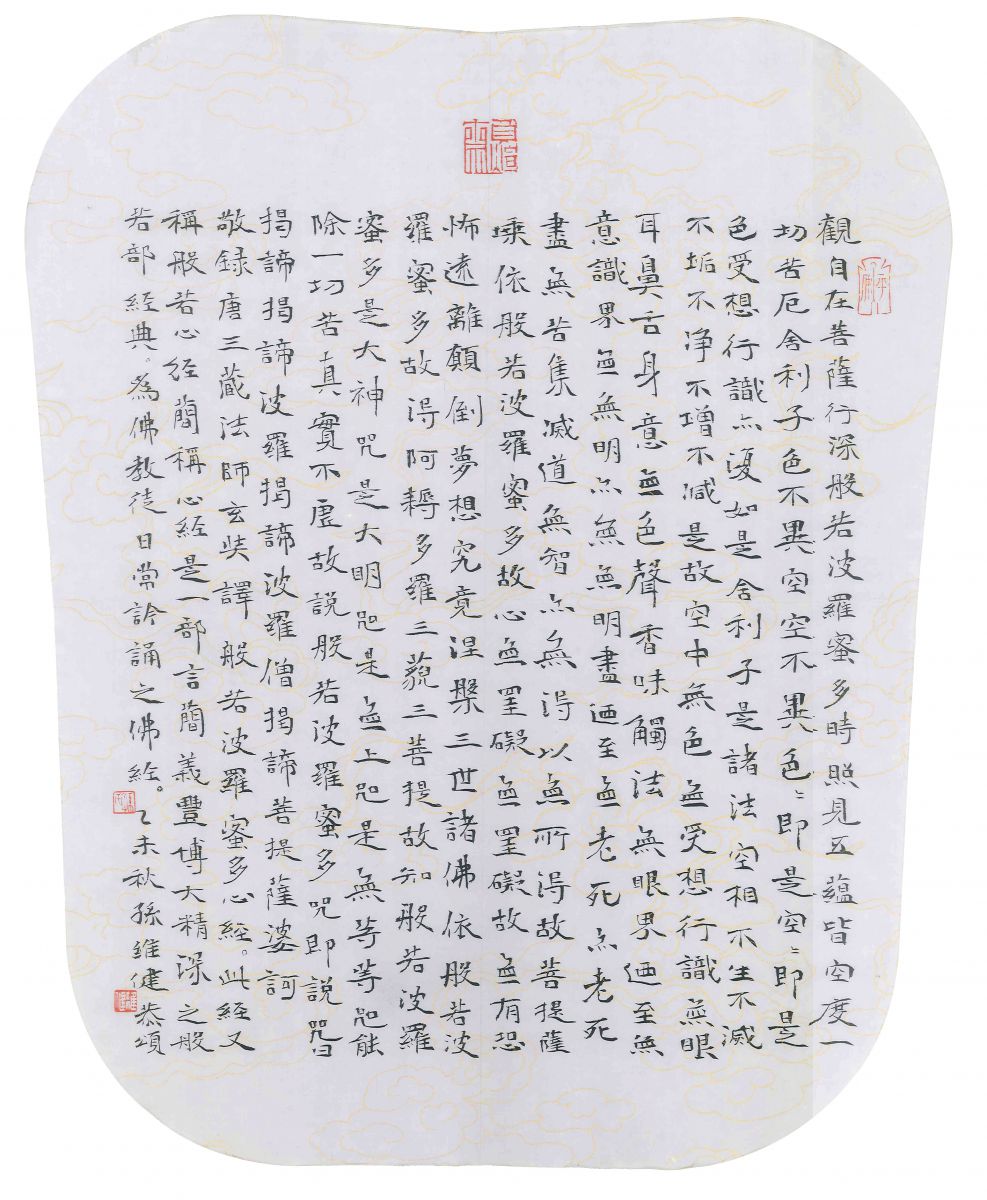 觀自在菩薩行深般若波羅蜜多時照見五蘊皆空度一
切苦厄舍利子色不異空空不異色〻即是空〻即是
色受想行識亦復如是舍利子是諸法空相不生不滅
不垢不淨不增不減是故空中無色無受想行識無眼
耳鼻舌身意無色聲香味觸法無眼界迺至無
意識界無無明亦無無明盡迺至無老死亦老死
盡無苦集滅道無智亦無得以無所得故菩提薩
埵依般若波羅蜜多故心無罣礙無罣礙故無有恐
怖遠離顛倒夢想究竟涅槃三世諸佛依般若波
羅蜜多故得阿耨多羅三藐三菩提故知般若波羅
蜜多是大神咒是大明咒是無上咒是無等等咒能
除一切苦真實不虛故說般若波羅蜜多咒即說咒曰
揭諦揭諦波羅揭諦波羅僧揭諦菩提薩婆訶
敬録唐三藏法師玄奘譯般若波羅蜜多心經。此經又
稱般若心經簡稱心經是一部言簡義豐博大精深之般
若部經典。為佛教徒日常訡誦之佛經。乙未秋孫維健恭頌